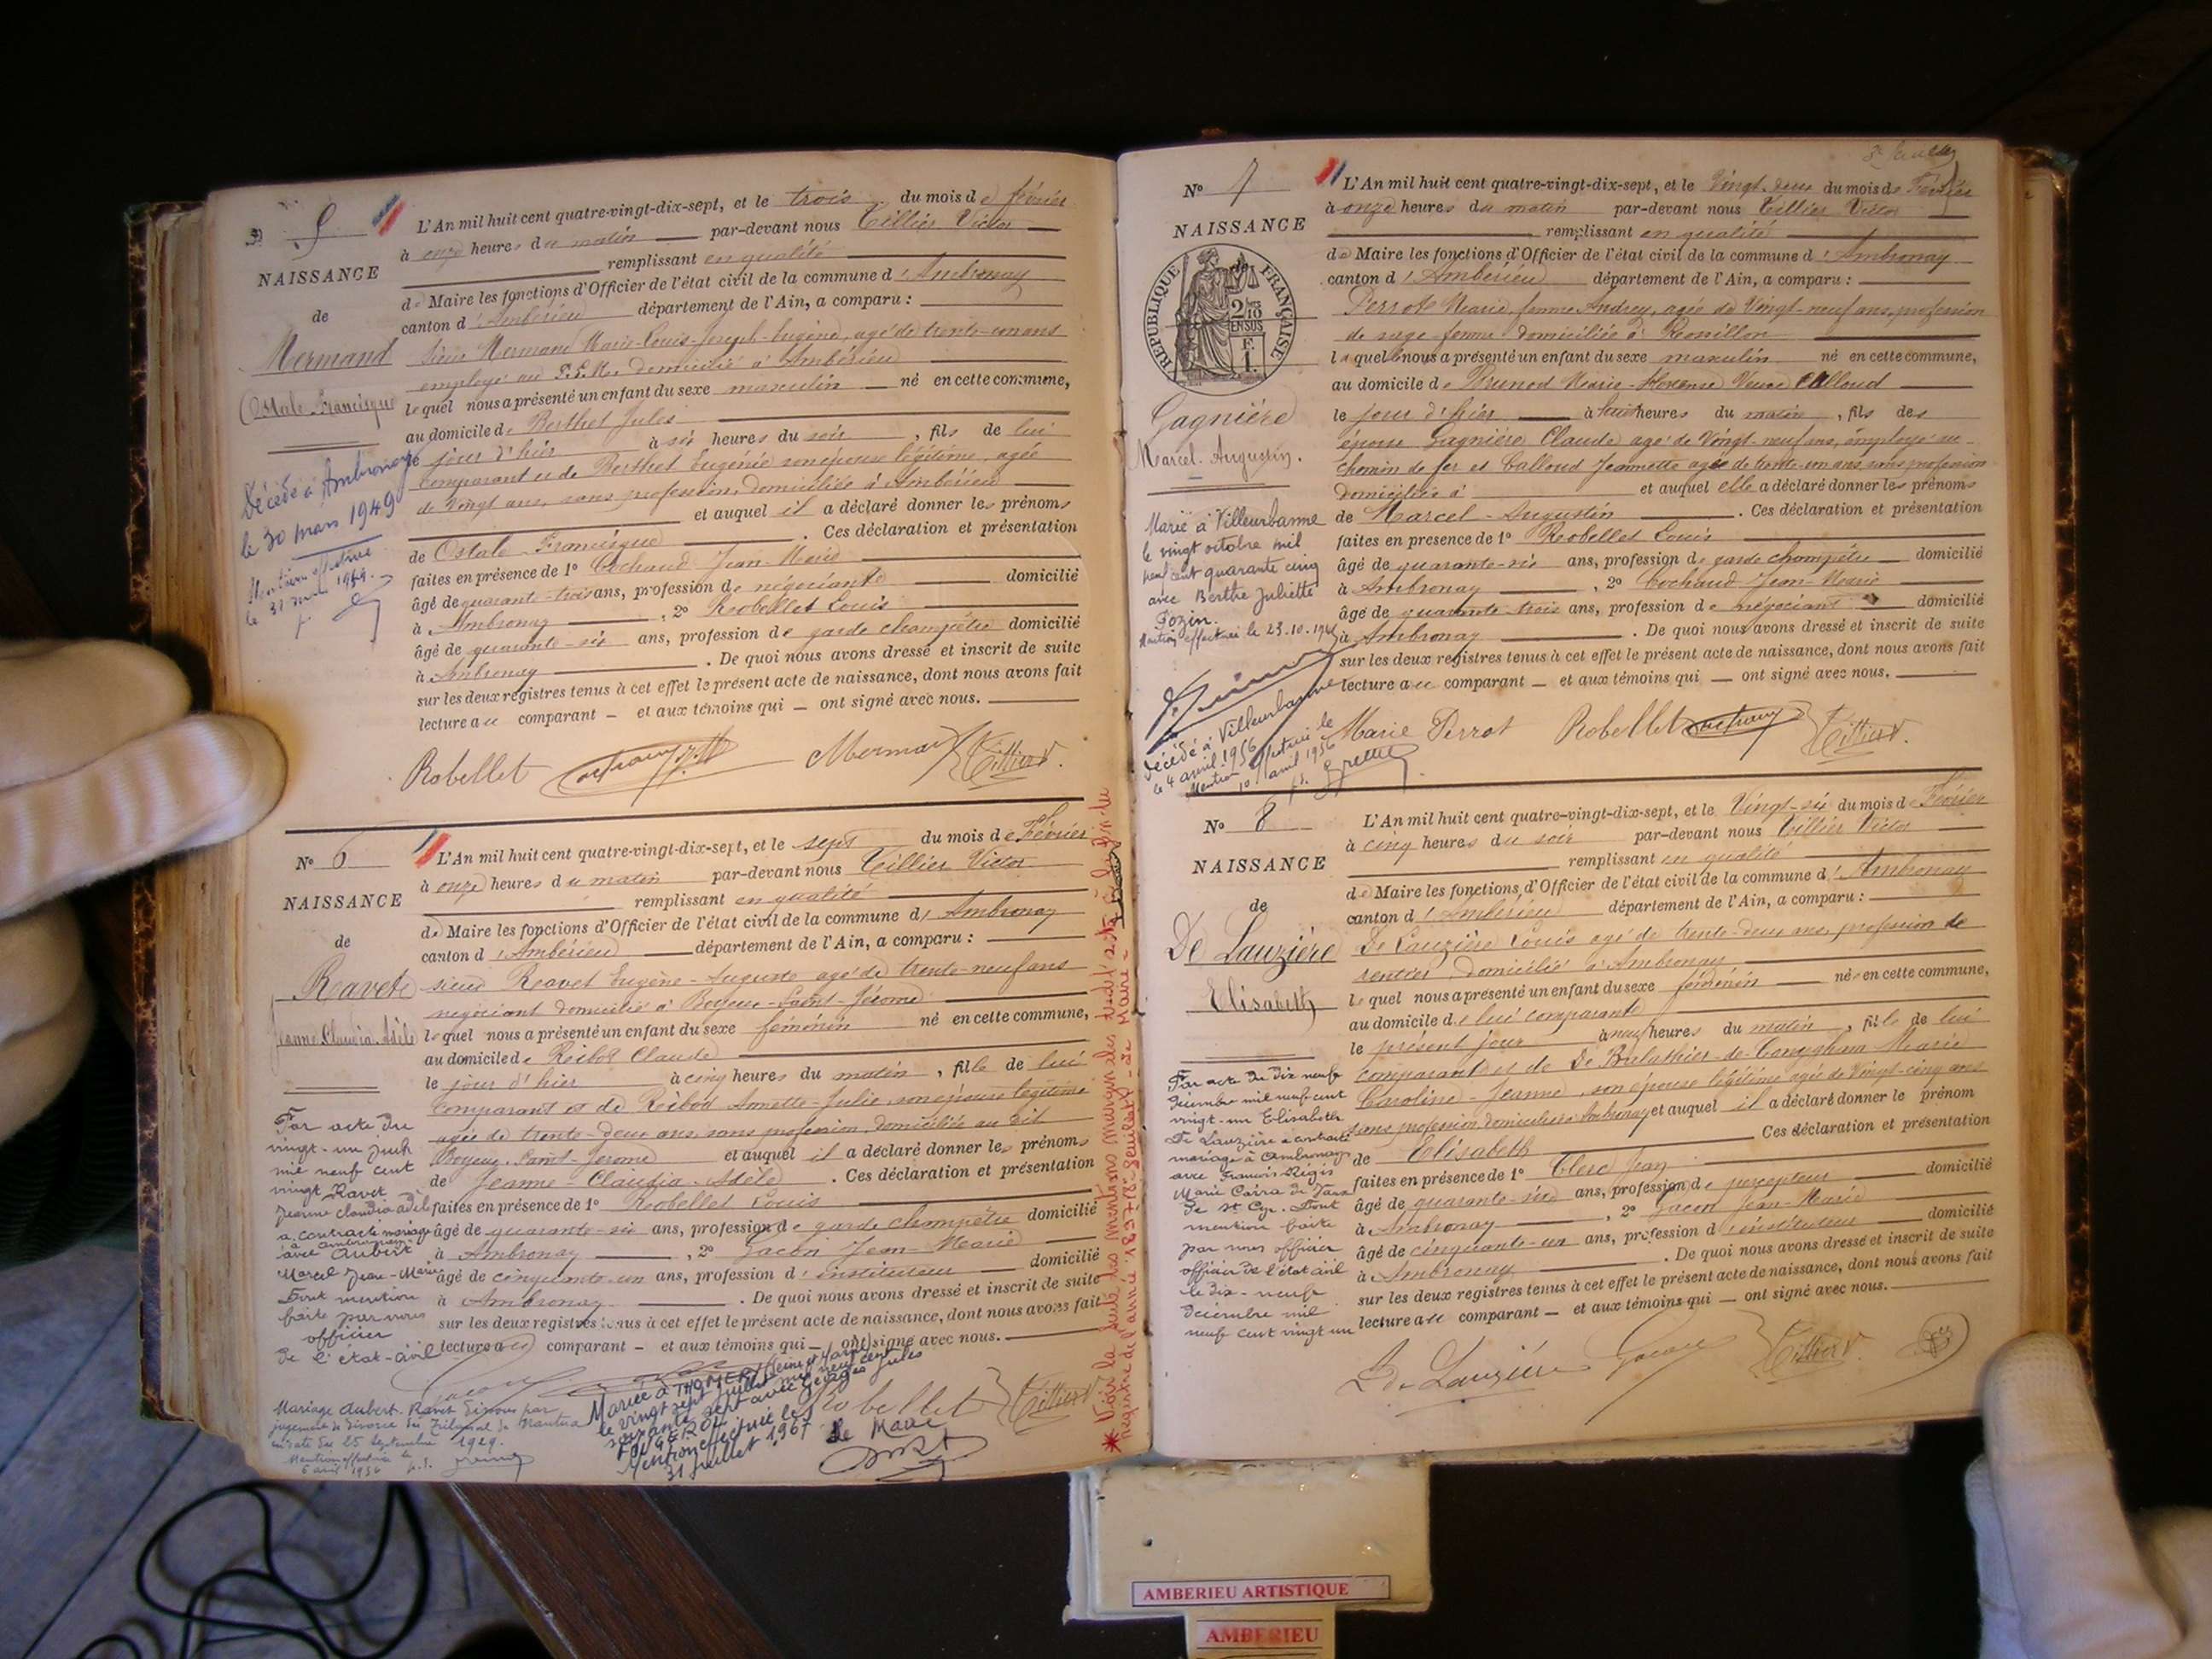 5
NAISSANCE
de
Mermand
Ostale Francisque
Décédé à Ambronay
le 30 mars 1949
Mention effectuée
le 31 mars 1949
L'An mil huit cent quatre-vingt-dix-sept, et le trois du mois de février
à onze heures du matin par-devant nous Tillier Victor
remplissant en qualité
de Maire les fonctions d'Officier de l'état civil de la commune d'Ambronay
canton d'Ambérieu département de l'Ain, a comparu :
sieur Mermand Marie-Louis-Joseph-Eugène, agé de trente-un ans
employé au P.L.M. domicilié à Ambérieu
lequel nous a présenté un enfant du sexe masculin né en cette commune,
au domicile de Berthet Jules
le jour d'hier à six heures du soir, fils de lui
comparant et de Berthet Eugénie son épouse légitime, agée
de vingt ans, sans profession, domiciliée à Ambérieu
et auquel il a déclaré donner les prénoms
de Ostale Francisque . Ces déclaration et présentation
faites en présence de 1° Cochaud Jean-Marie
âgé de quarante-trois ans, profession de négociant domicilié
à Ambronay , 2° Robellet Louis
âgé de quarante-six ans, profession de garde champêtre domicilié
à Ambronay . De quoi nous avons dressé et inscrit de suite
sur les deux registres tenus à cet effet le présent acte de naissance, dont nous avons fait
lecture au comparant et aux témoins qui ont signé avec nous.
Robellet Mermand Tillier V.
N° 6
NAISSANCE
de
Ravet
Jeanne Claudia Adèle
Par acte du
vingt-un juin
mil neuf cent
vingt Ravet
Jeanne Claudia Adèle
a contracté mariage
à Ambronay
avec Aubert
Marcel Jean-Marie
Dont mention
faite par nous
officier
de l'état-civil
L'An mil huit cent quatre-vingt-dix-sept, et le sept du mois de Février
à onze heures du matin par-devant nous Tillier Victor
remplissant en qualité
de Maire les fonctions d'Officier de l'état civil de la commune d'Ambronay
canton d'Ambérieu département de l'Ain, a comparu :
sieur Ravet Eugène-Auguste agé de trente-neuf ans
négociant domicilié à Boyeux-Saint-Jérome
lequel nous a présenté un enfant du sexe féminin né en cette commune,
au domicile de Reibod Claude
le jour d'hier à cinq heures du matin, fille de lui
comparant et de Reibod Annette-Julie, son épouse légitime
agée de trente-deux ans, sans profession, domiciliée au dit
Boyeux-Saint-Jérome et auquel il a déclaré donner les prénoms
de Jeanne-Claudia-Adèle . Ces déclaration et présentation
faites en présence de 1° Robellet Louis
âgé de quarante-six ans, profession de garde champêtre domicilié
à Ambronay , 2° Jacon Jean-Marie
âgé de cinquante-un ans, profession d'instituteur domicilié
à Ambronay . De quoi nous avons dressé et inscrit de suite
sur les deux registres tenus à cet effet le présent acte de naissance, dont nous avons fait
lecture au comparant et aux témoins qui ont signé avec nous.
Robellet Tillier V.
Mariage Aubert-Ravet dissous par
jugement de divorce du Tribunal de Nantua
en date du 25 Septembre 1929.
Mention effectuée le
6 avril 1956
Mariée à THOMERY (Seine et Marne)
le vingt sept Juillet mil neuf cent
soixante sept avec Georges Jules
FOUGEROL
Mention effectuée le
31 Juillet 1967
Le Maire
N° 7
NAISSANCE
RÉPUBLIQUE FRANÇAISE
2/10
EN SUS
F.
1.
Gagnière
Marcel-Augustin.
Marié à Villeurbanne
le vingt octobre mil
neuf cent quarante cinq
avec Berthe Juliette
Fozin.
Mention effectuée le 23.10.1945
Décédé à Villeurbanne
le 4 avril 1956
Mention effectuée le
10 avril 1956
L'An mil huit cent quatre-vingt-dix-sept, et le Vingt-deux du mois de Février
à onze heures du matin par-devant nous Tillier Victor
remplissant en qualité
de Maire les fonctions d'Officier de l'état civil de la commune d'Ambronay
canton d'Ambérieu département de l'Ain, a comparu :
Perrot Marie, femme Andrey, agée de Vingt-neuf ans, profession
de sage femme domiciliée à
laquelle nous a présenté un enfant du sexe masculin né en cette commune,
au domicile de Brunod Marie-Florence Veuve Calloud
le jour d'hier à huit heures du matin, fils des
époux Gagnière Claude agé de Vingt-neuf ans, employé au
chemin de fer et Calloud Jeannette agée de trente-un ans, sans profession
domiciliés à et auquel elle a déclaré donner les prénoms
de Marcel-Augustin . Ces déclaration et présentation
faites en présence de 1° Robellet Louis
âgé de quarante-six ans, profession de garde champêtre domicilié
à Ambronay , 2° Cochaud Jean-Marie
âgé de quarante-trois ans, profession de négociant domicilié
à Ambronay . De quoi nous avons dressé et inscrit de suite
sur les deux registres tenus à cet effet le présent acte de naissance, dont nous avons fait
lecture au comparant et aux témoins qui ont signé avec nous.
Marie Perrot Robellet Tillier V.
N° 8
NAISSANCE
de
De Lauzière
Elisabeth
Par acte du dix neuf
Décembre mil neuf cent
vingt-un Elisabeth
De Lauzière a contracté
mariage à Ambronay
avec Francis Régis
Marie Carra de Vaux
de St Cyr. Dont
mention faite
par nous officier
officier de l'état civil
le dix-neuf
Décembre mil
neuf cent vingt un
L'An mil huit cent quatre-vingt-dix-sept, et le Vingt-six du mois de Février
à cinq heures du soir par-devant nous Tillier Victor
remplissant en qualité
de Maire les fonctions d'Officier de l'état civil de la commune d'Ambronay
canton d'Ambérieu département de l'Ain, a comparu :
De Lauzière Louis agé de trente-deux ans, profession de
rentier, domicilié à Ambronay
lequel nous a présenté un enfant du sexe féminin née en cette commune,
au domicile de lui comparant
le présent jour à neuf heures du matin, fille de lui
comparant et de Marie
Caroline-Jeanne, son épouse légitime agée de Vingt-cinq ans
sans profession domiciliée à Ambronay et auquel il a déclaré donner le prénom
de Elisabeth Ces déclaration et présentation
faites en présence de 1° Clerc Jean
âgé de quarante-six ans, profession de percepteur domicilié
à Ambronay , 2° Jacon Jean-Marie
âgé de cinquante-un ans, profession d'instituteur domicilié
à Ambronay . De quoi nous avons dressé et inscrit de suite
sur les deux registres tenus à cet effet le présent acte de naissance, dont nous avons fait
lecture au comparant et aux témoins qui ont signé avec nous.
L De Lauzière Jacon Tillier V.
AMBERIEU ARTISTIQUE
AMBERIEU